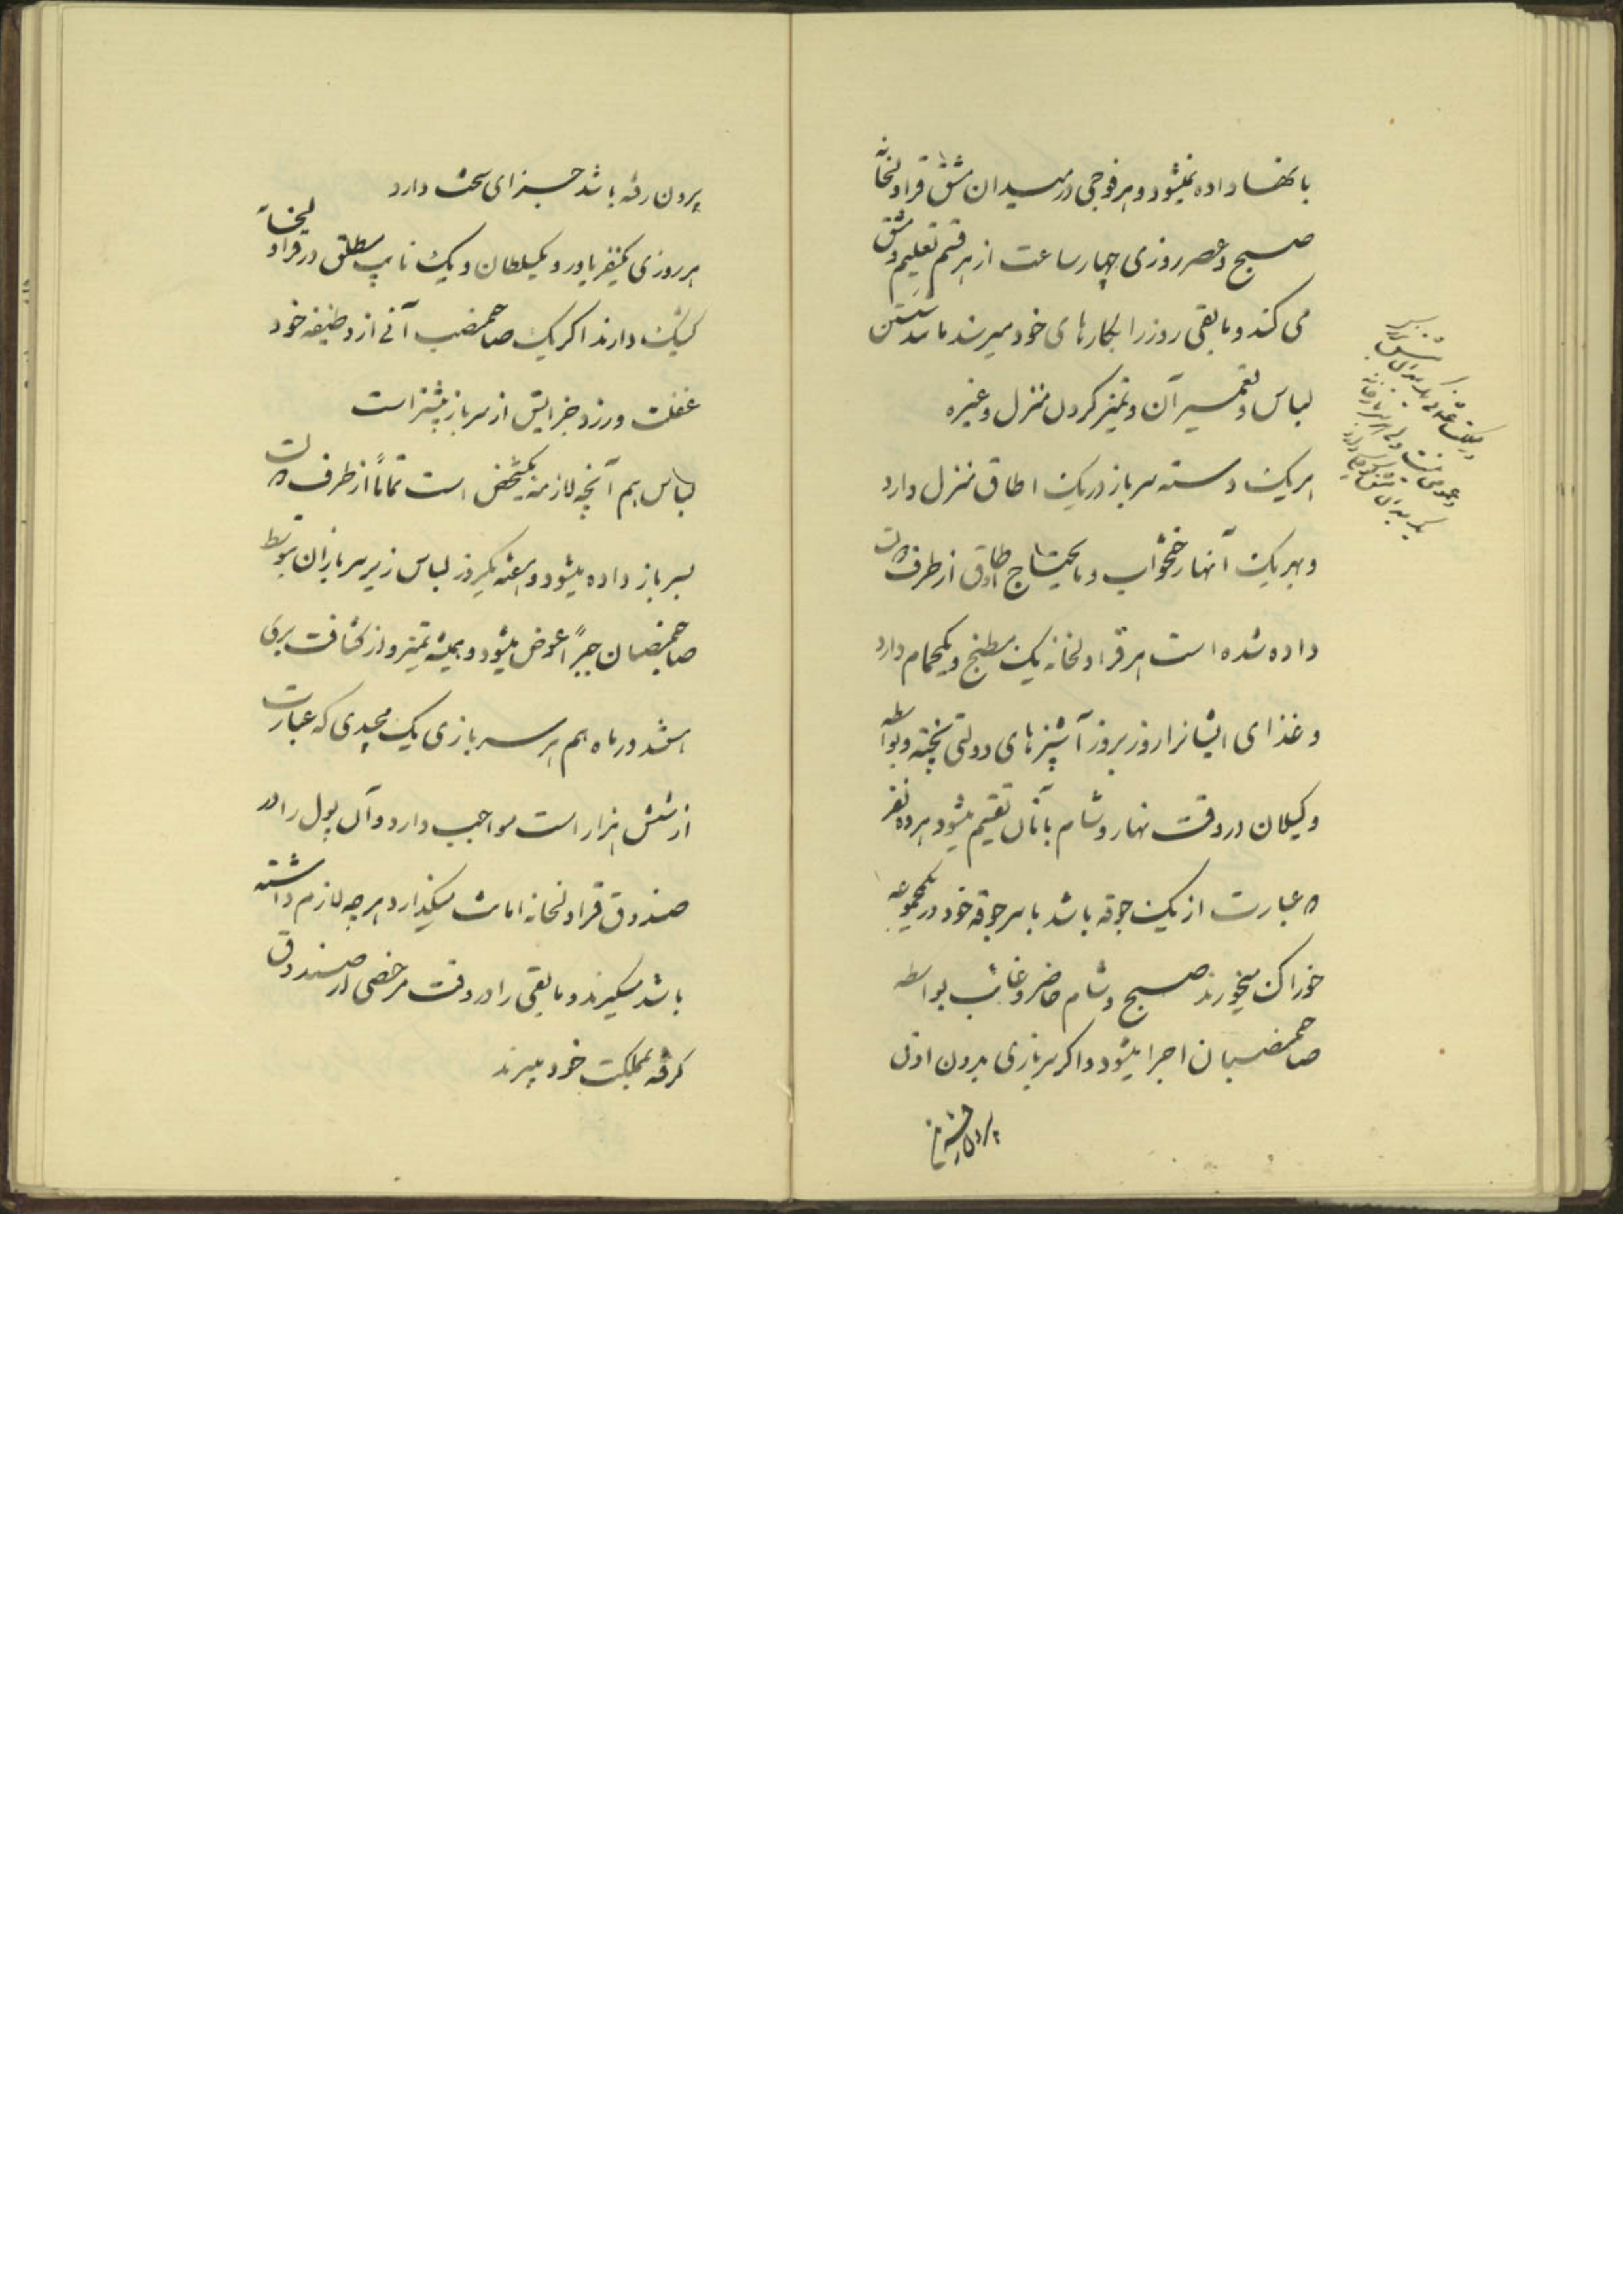 بانها داده نمیشود و هر فوجی در میدان مشق قراولخانه
صبح و عصر روزی چهار ساعت از هر قسم تعلیم و مشق
می کند و مابقی روز را بکارهای خود میرسند مانند شستن
لباس و تعمیر آن و تمیز کردن منزل و غیره
هر یک دسته سرباز در یک اطاق منزل دارد
و بهر یک آنها رختخواب و مایحتاج اطاق از طرف دولت
داده شده است هر قراولخانه یک مطبخ و یکحمام دارد
و غذای ایشانرا روز بروز آشپزهای دولتی پخته و بواسطه
وکیلان در وقت نهار و شام بآنان تقسیم میشود هر ده نفر
که عبارت از یک جوقه باشد با سرجوقه خود در یکمجموعه
خوراک میخورند صبح و شام حاضر و غائب بواسطه
صاحمنصبان اجرا میشود و اگر سربازی بدون اذن
بیرون رفته باشد جزای سخت دارد
هر روزی یکنفر یاور و یکسلطان و یک نایب مطلق در قراولخانه
کیشک دارند اگر یک صاحمنصب آنی از وظیفه خود
غفلت ورزد جزایش از سرباز بیشتر است
لباس هم آنچه لازمه یکشخص است تماماً از طرف دولت
بسرباز داده میشود و هفته یکروز لباس زیر سربازان بتوسط
صاحمنصبان جبراً عوض میشود و همیشه تمیز و از کثافت بری
هستند در ماه هم هر سربازی یک مجیدی که عبارت
از شش هزار است مواجب دارد و آن پول را در
صندوق قراولخانه امانت میگذارد هر چه لازم داشته
باشد میگیرند و مابقی را در وقت مرخصی از صندوق
گرفته بمملکت خود میبرند